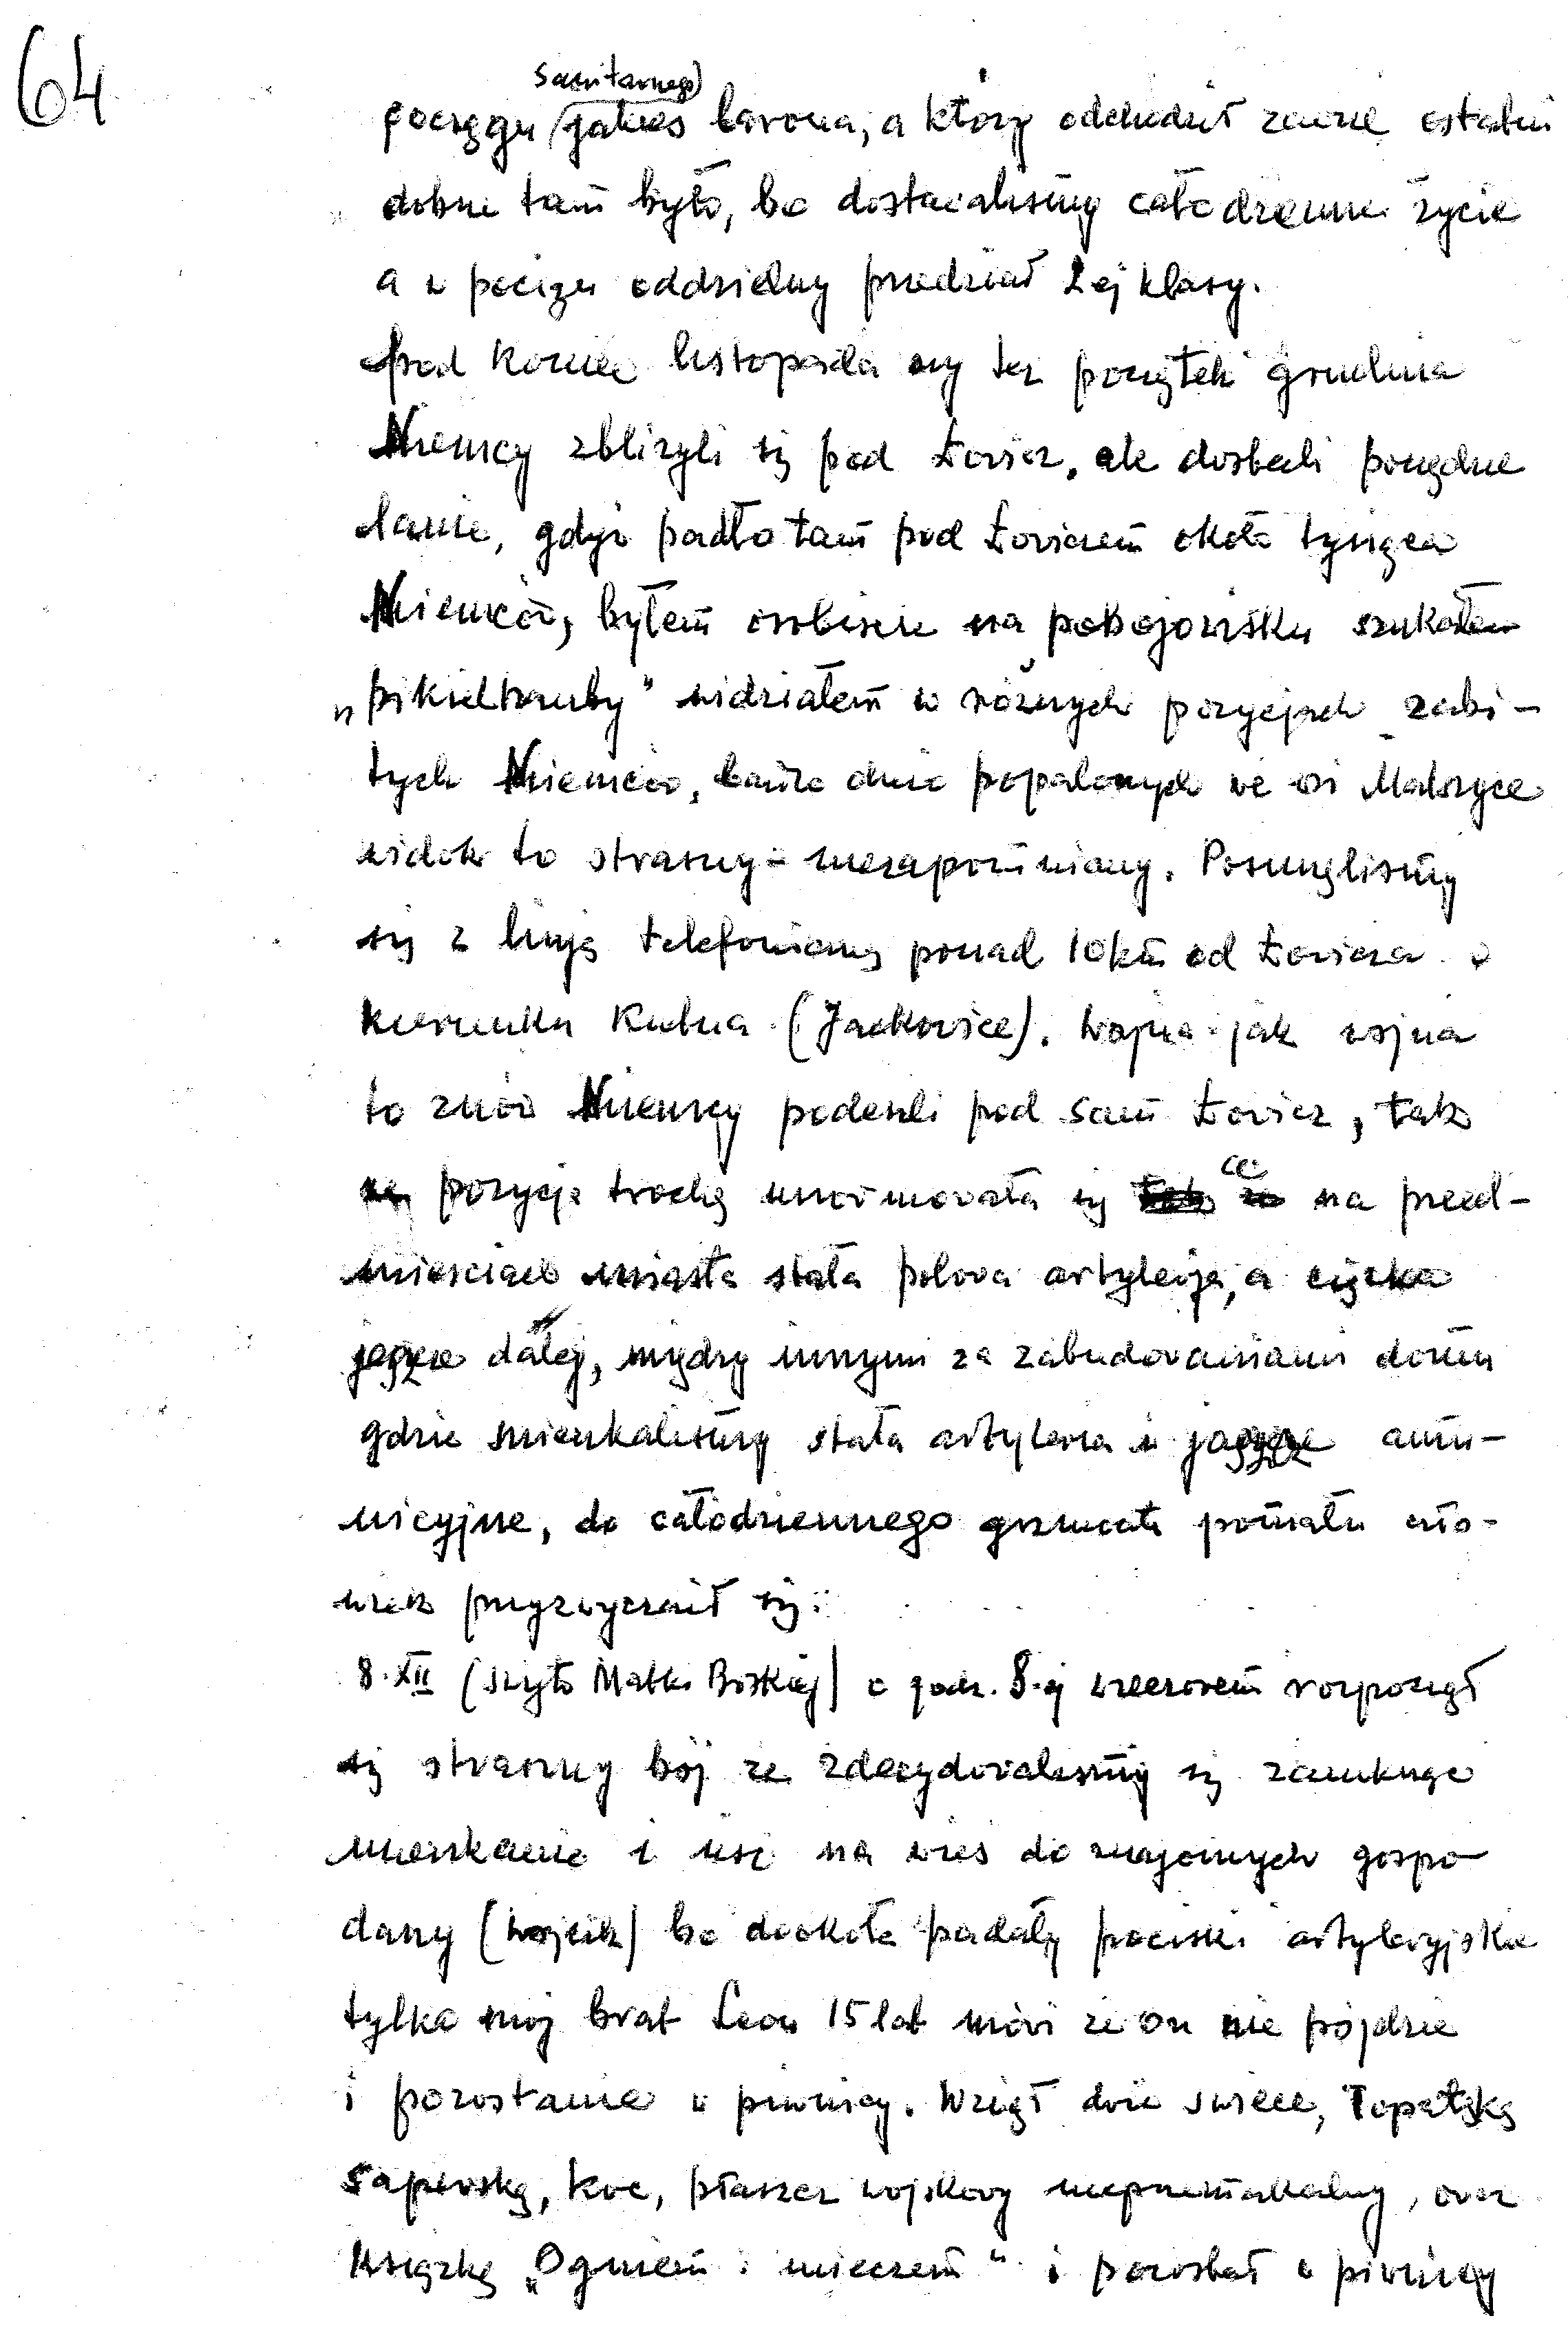 64
sanitarnego
pociągu jakiegoś barona, a który odchodził zawsze ostatni
dobrze tam było, bo dostawaliśmy całodzienne życie
a w pociągu oddzielny przedział 2 ej klasy.
pod koniec listopada czy też początek grudnia
Niemcy zbliżyli się pod Łowicz, ale dostali porządne
lanie, gdyż padło tam pod Łowiczem około tysiąca
Niemców, byłem osobiście na pobojowisku szukałem
„pikielhauby" widziałem w różnych pozycjach zabi-
tych Niemców, bardzo dużo popalonych we wsi Małszyce
widok to straszny - niezapomniany. Posunęliśmy
się z linją telefoniczną ponad 10 km od Łowicza w
kierunku Kutna (Jackowice). Wojna jak wojna
to znów Niemcy podeszli pod sam Łowicz, tak
pozycja trochę unormowała się na przed-
mieściach miasta stała polowa artylerja, a ciężka
jeszcze dalej, między innymi za zabudowaniami domu
gdzie mieszkaliśmy stała artyleria i jaszcze amu-
nicyjne, do całodziennego grzmotu pomału czło-
wiek przyzwyczaił się.
8.XII (święto Matki Boskiej) o godz. 8-ej wieczorem rozpoczął
się straszny bój że zdecydowaliśmy się zamknąć
mieszkanie i iść na wieś do znajomych gospo
darzy (Wojcik) bo dookoła padały pociski artyleryjskie
tylko mój brat Leon 15 lat mówi że on nie pójdzie
i pozostanie w piwnicy. Wziął dwie świece, łopatkę
saperską, koc, płaszcz wojskowy nieprzemakalny, oraz
książkę „Ogniem i mieczem" i pozostał w piwnicy